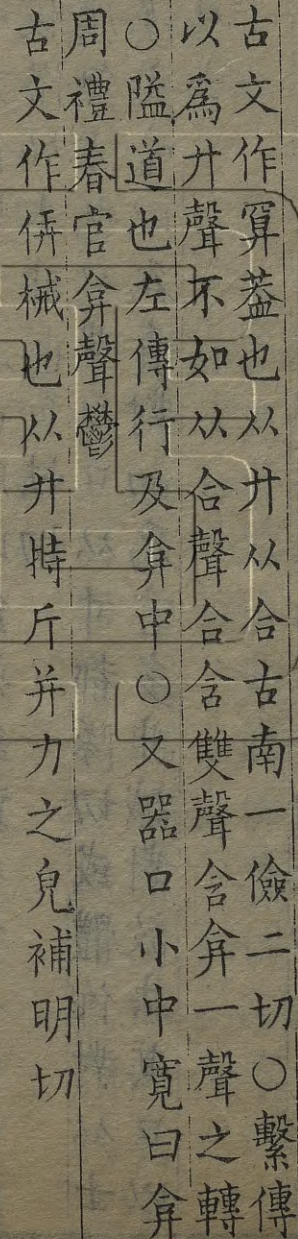 古文作㝓葢也从廾从合古南一儉二切○繫傳
以爲廾聲不如从合聲合含雙聲含弇一聲之轉
○隘道也左傳行及弇中○又器口小中寛曰弇
周禮春官弇聲鬱
古文作㑟械也从廾持斤并力之皃補明切